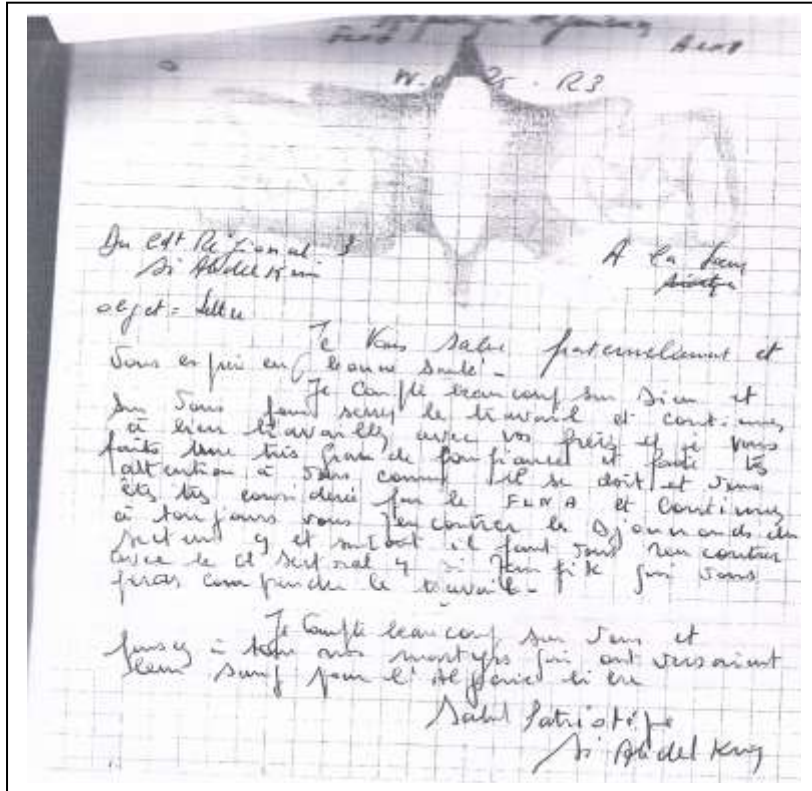 R3
Du Cdt Régional 3
Si Abdel Krim
A la Soeur
objet = Lettre
Je vous salue fraternellement et
vous espère en bonne santé -
Je compte beaucoup sur Dieu et
sur vous pour le travail et continuez
à bien travailler avec vos frères et je vous
faits une très grande confiance et faite très
attention à vous comme il se doit et vous
êtes très considérée par le et continuez
à toujours vous rencontrer les Djounouds du
secteur 4 et surtout il faut vous rencontrer
avec le sectoral 4 Si qui vous
feras comprendre le travail -
Je compte beaucoup sur vous et
pensez à tous nos martyrs qui ont versaient
leur sang pour l'Algérie libre
Salut Patriotique
Si Abdel Krim